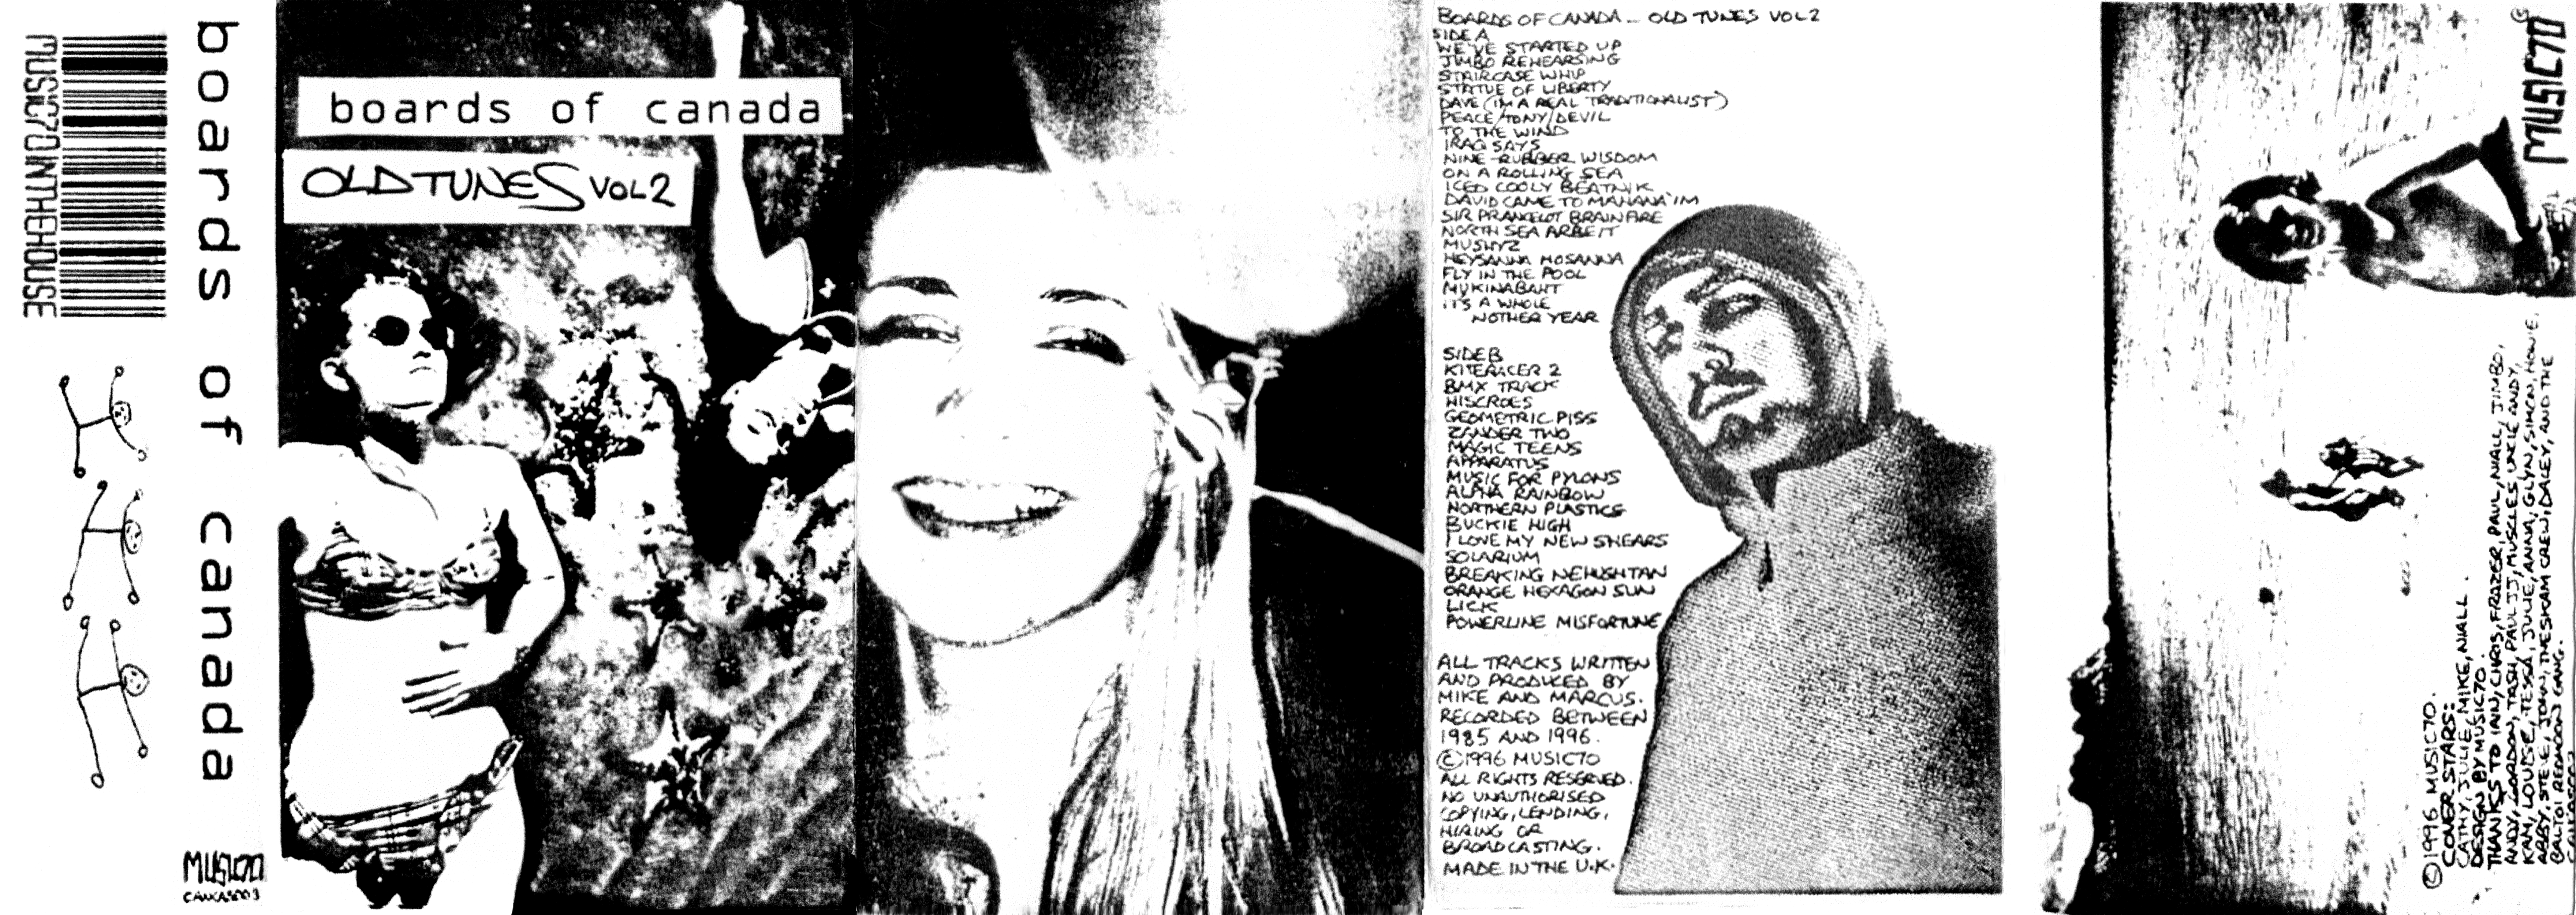 MUSIC70INTHEHOUSE
boards of canada
MUSIC70
boards of canada
OLD TUNES VOL 2
BOARDS OF CANADA - OLD TUNES VOL 2
SIDE A
WE'VE STARTED UP
JIMBO REHEARSING
STAIRCASE WHIP
STATUE OF LIBERTY
DAVE (I'M A REAL TRADITIONALIST)
PEACE/TONY/DEVIL
TO THE WIND
IRAQ SAYS
NINE-RUBBER WISDOM
ON A ROLLING SEA
ICED COOLY BEATNIK
DAVID CAME TO MAHANA'IM
SIR PRANCELOT BRAINFIRE
NORTH SEA ARBEIT
MUSHYZ
HEYSANNA HOSANNA
FLY IN THE POOL
MUKINABAHT
IT'S A WHOLE
NOTHER YEAR
SIDE B
KITERACER 2
BMX TRACK
HISCROES
GEOMETRIC PISS
ZANDER TWO
MAGIC TEENS
APPARATUS
MUSIC FOR PYLONS
ALPHA RAINBOW
NORTHERN PLASTICS
BUCKIE HIGH
I LOVE MY NEW SHEARS
SOLARIUM
BREAKING NEHUSHTAN
ORANGE HEXAGON SUN
LICK
POWERLINE MISFORTUNE
ALL TRACKS WRITTEN
AND PRODUCED BY
MIKE AND MARCUS.
RECORDED BETWEEN
1985 AND 1996.
©1996 MUSIC70
ALL RIGHTS RESERVED.
NO UNAUTHORISED
COPYING, LENDING,
HIRING OR
BROADCASTING.
MADE IN THE U.K.
MUSIC70
©1996 MUSIC70.
COVER STARS:
CATHY, JULIE, MIKE, NIALL.
DESIGN BY MUSIC70.
THANKS TO IAIN, CHRIS, FRAZER, PAUL, NIALL, JIMBO,
ANDY, GORDON, TASH, PAUL JJ, MUSCLES, UNCLE ANDY,
KAM, LOUISE, TESSA, JULIE, ANNA, GLYN, SIMON, HOWIE,
ABBY, STEVE, JOHN, THESKAM CREW, DACEY, AND THE
REDMOON GANG.